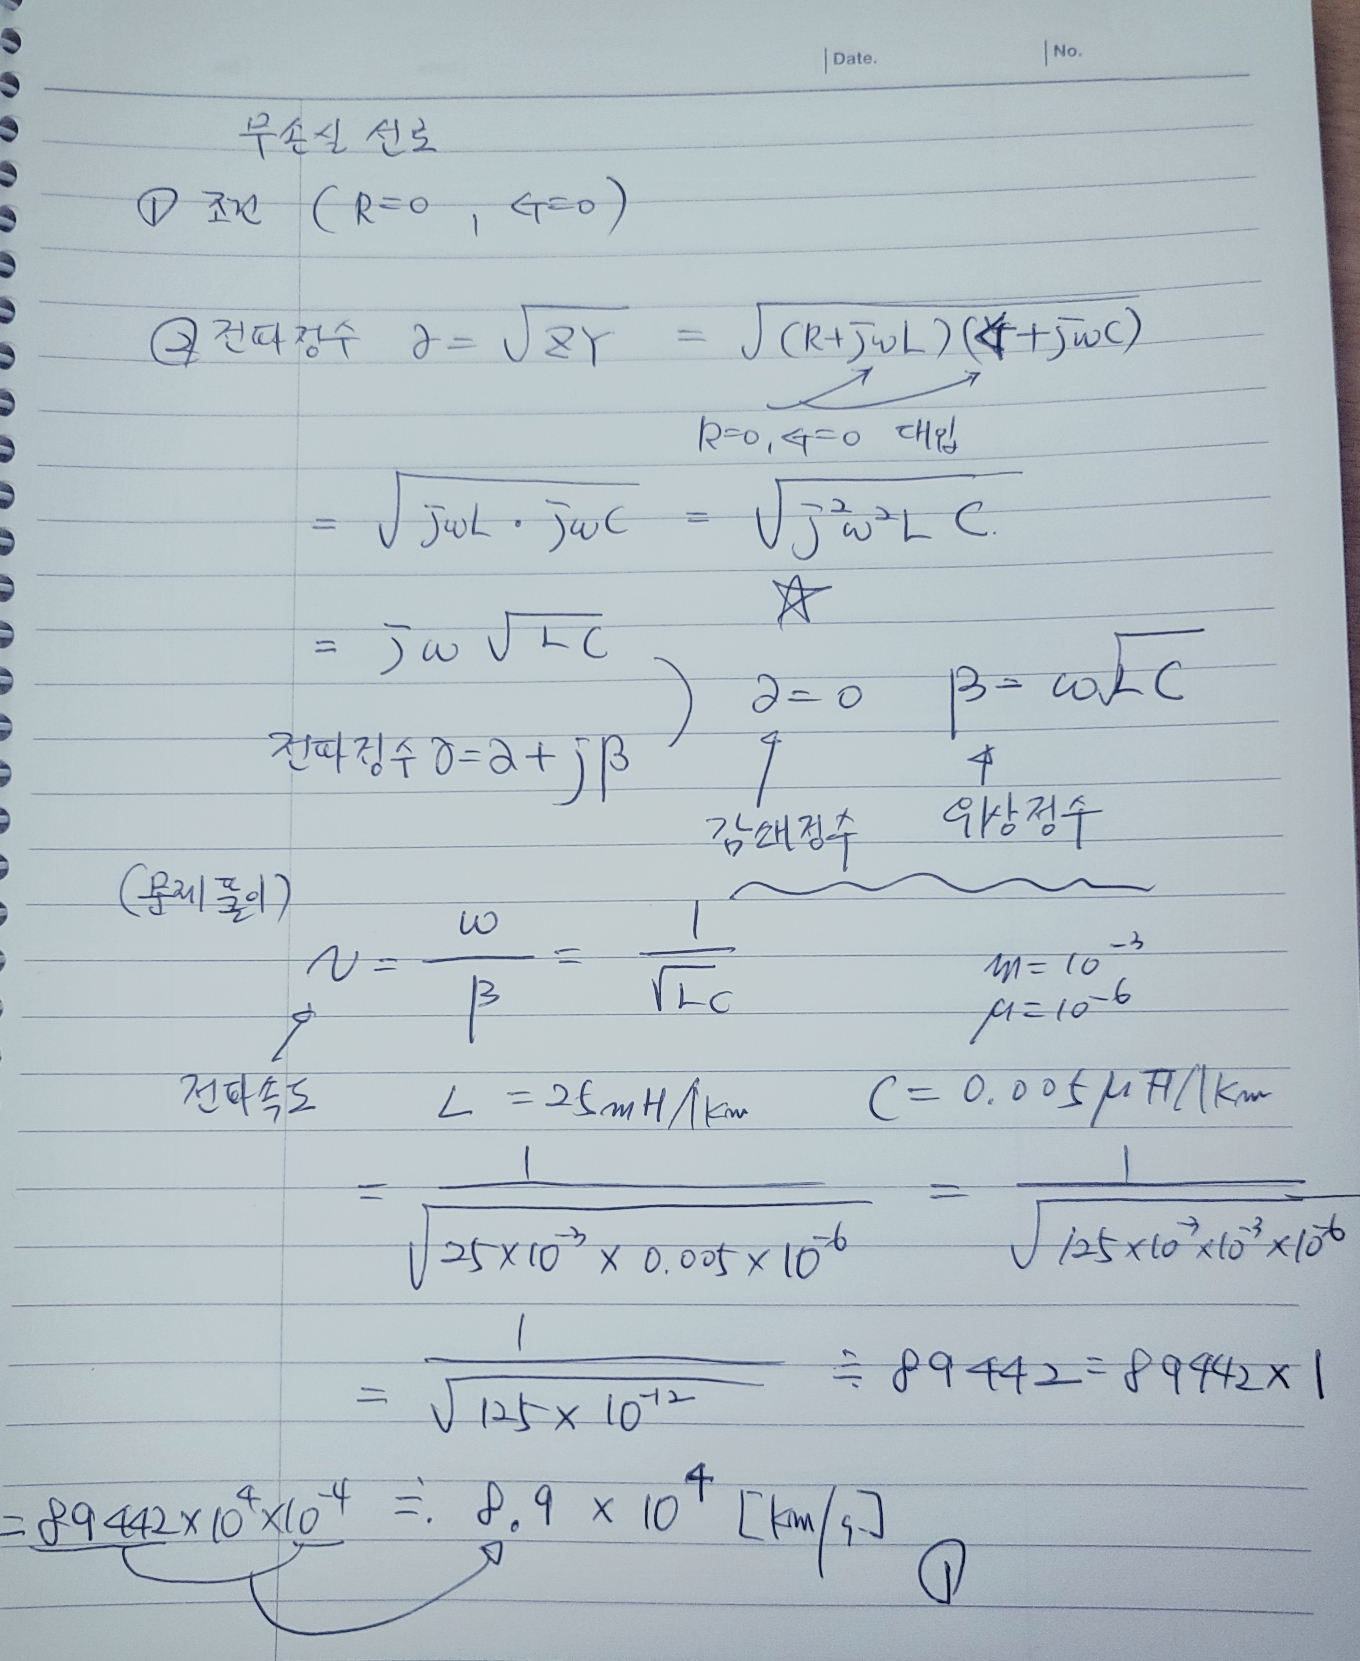 Date. No.
무손실 선로
① 조건 (R=0, G=0)
② 전파정수 γ = √ZY = √(R+jωL)(G+jωC)
R=0, G=0 대입
= √jωL · jωC = √j²ω²LC.
☆
= jω√LC
α=0 β=ω√LC
전파정수 γ=α+jβ
감쇄정수 위상정수
(문제풀이)
v = ω/β = 1/√LC
m=10⁻³
μ=10⁻⁶
전파속도 L = 25mH/1km C = 0.005μF/1km
= 1/√25×10⁻³ × 0.005×10⁻⁶ = 1/√125×10⁻³×10⁻³×10⁻⁶
= 1/√125×10⁻¹² ≒ 89442 = 89442×1
= 89442×10⁴×10⁻⁴ ≒ 8.9 × 10⁴ [km/s]
①